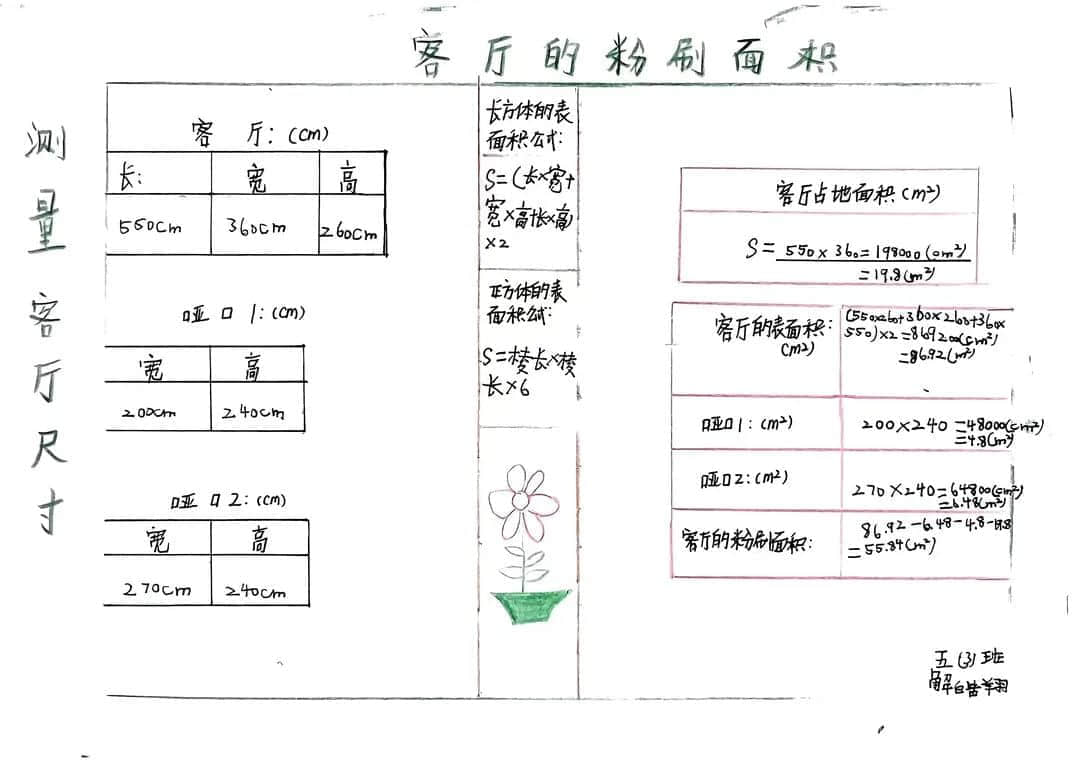 客厅的粉刷面积
测量客厅尺寸
客厅:(cm)
长: 宽 高
550cm 360cm 260cm
哑口1:(cm)
宽 高
200cm 240cm
哑口2:(cm)
宽 高
270cm 240cm
长方体的表
面积公式:
S=(长×宽+
宽×高+长×高)
×2
正方体的表
面积公式:
S=棱长×棱
长×6
客厅占地面积(m²)
S=550×360=198000(cm²)
=19.8(m²)
客厅的表面积:
(m2)
360×260+360×
550)×2=869200(cm²)
=86.92(m²)
哑口1:(m²)
200×240=48000(cm²)
=4.8(m²)
哑口2:(m²)
270×240=64800(cm²)
=6.48(m²)
客厅的粉刷面积:
86.92-6.48-4.8-19.8
=55.84(m²)
五(3)班
解